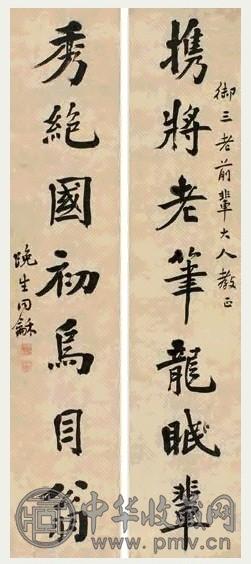 御三老前輩大人教正
携將老筆龍眠輩
秀絶國初烏目翁
晚生同龢
中华收藏网
www.pmv.cn